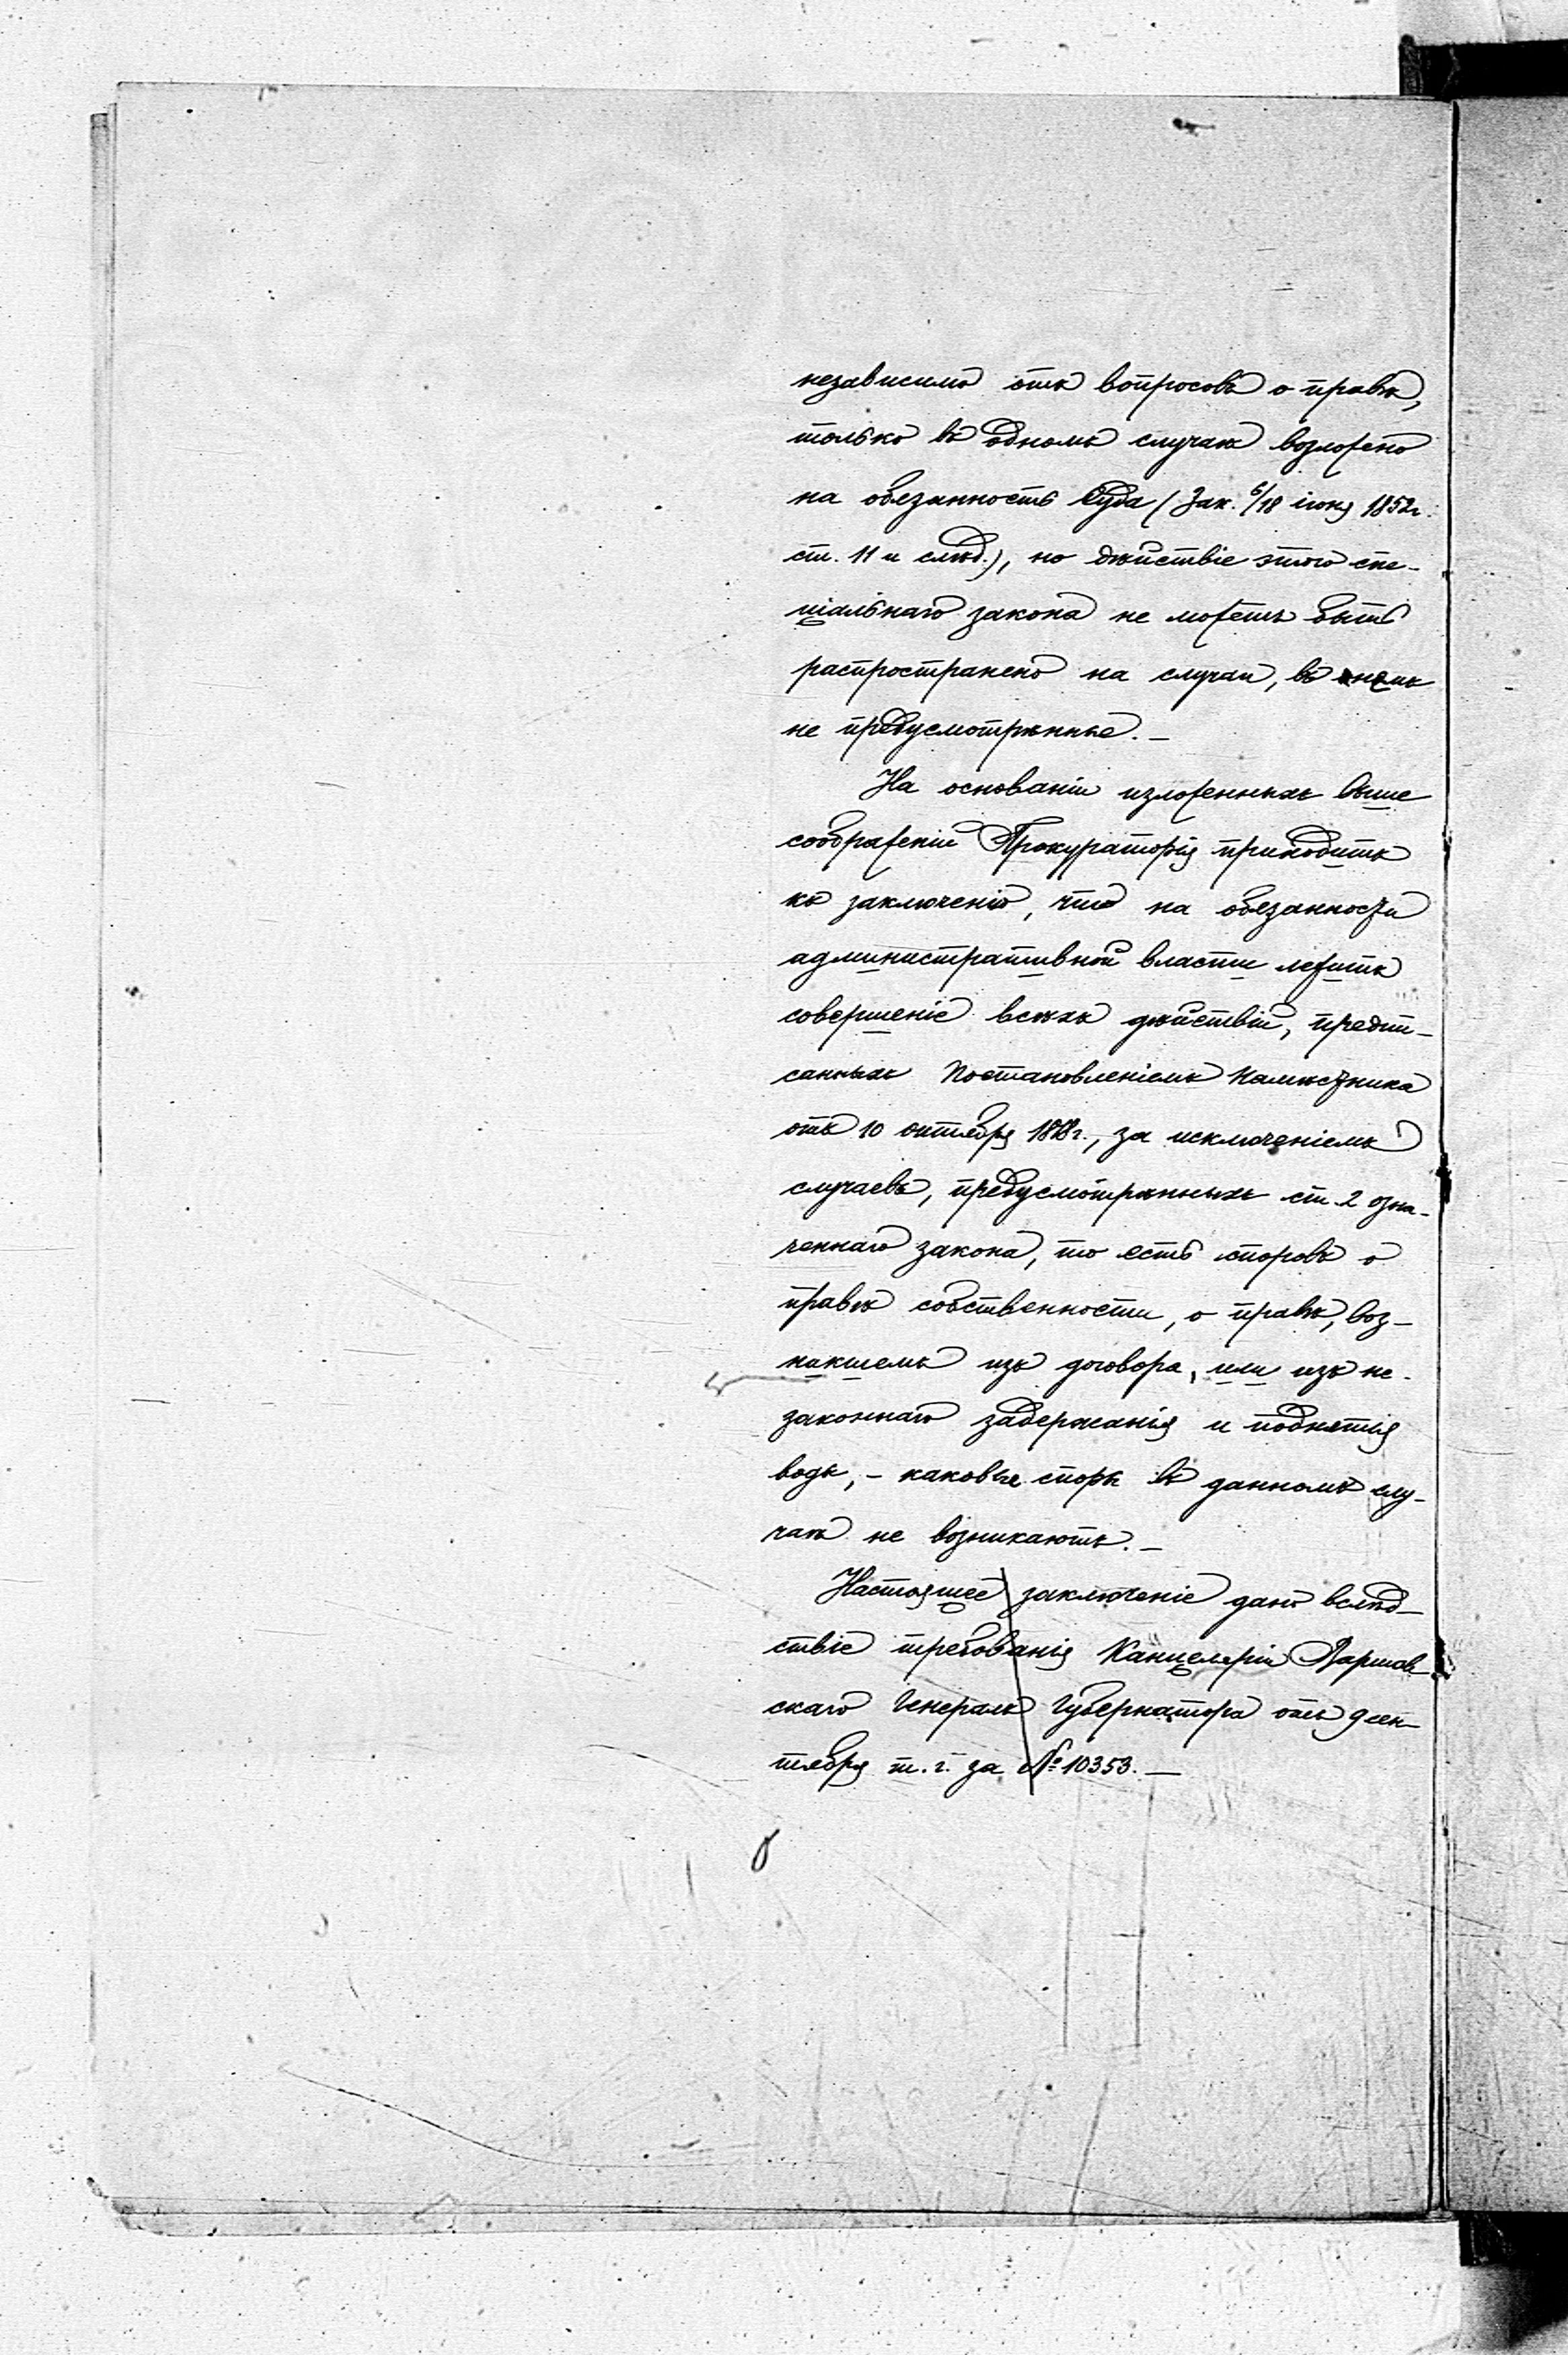 независимо отъ вопросовъ о правѣ,
только въ одномъ случаѣ возложено
на обязанность Суда (Зак. 6/18 іюня 1852 г.
ст. 11 и слѣд.), но дѣйствіе этого спе-
ціальнаго закона не можетъ быть
распространено на случаи, въ немъ
не предусмотрѣнные. —
На основаніи изложенныхъ выше
соображеній Прокураторія приходитъ
къ заключенію, что на обязанности
административной власти лежитъ
совершеніе всѣхъ дѣйствій, предпи-
санныхъ Постановленіемъ Намѣстника
отъ 10 октября г., за исключеніемъ
случаевъ, предусмотрѣнныхъ ст. 2 озна-
ченнаго закона, то есть споровъ о
правѣ собственности, о правѣ, воз-
никшемъ изъ договора, или изъ не-
законнаго задержанія и поднятія
воды, – каковые споры въ данномъ слу-
чаѣ не возникаютъ. —
Настоящее заключеніе дано вслѣд-
ствіе требованія Канцеляріи Варшав-
скаго Генералъ Губернатора отъ 9 сен-
тября т. г. за № 10353. —